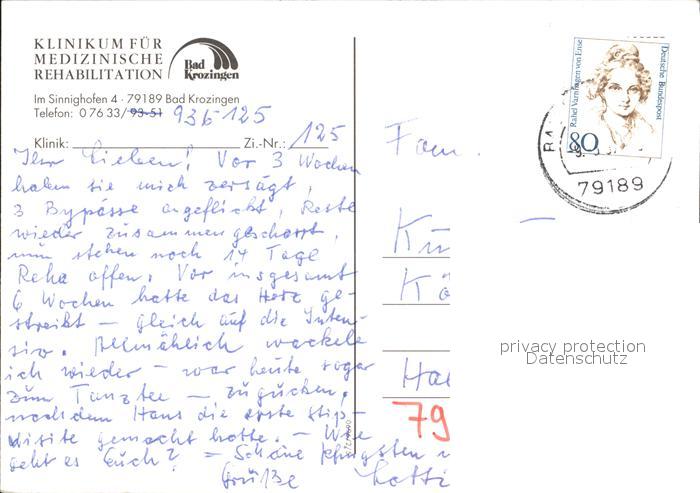 KLINIKUM FÜR
MEDIZINISCHE
REHABILITATION
Bad
Krozingen
Im Sinnighofen 4 · 79189 Bad Krozingen
Telefon: 0 76 33/93-51 936 125
Klinik: Zi.-Nr.: 125
Ihr Lieben! Vor 3 Wochen
haben sie mich zersägt,
3 Bypässe angeflickt, Reste
wieder zusammengeschorrt,
nun stehen noch 14 Tage
Reha offen. Vor insgesamt
6 Wochen hatte das Herz ge-
streikt – gleich auf die Inten-
siv. Allmählich wackele
ich wieder – war heute sogar
zum Tanztee – zugucken,
nachdem Hans die erste Stip-
visite gemacht hatte. – Wie
geht es Euch? – Schöne Pfingsten u
Grüße Lotti
Fam.
Kü
Kö
Ha
79
Rahel Varnhagen von Ense
Deutsche Bundespost
80
79189
privacy protection
Datenschutz